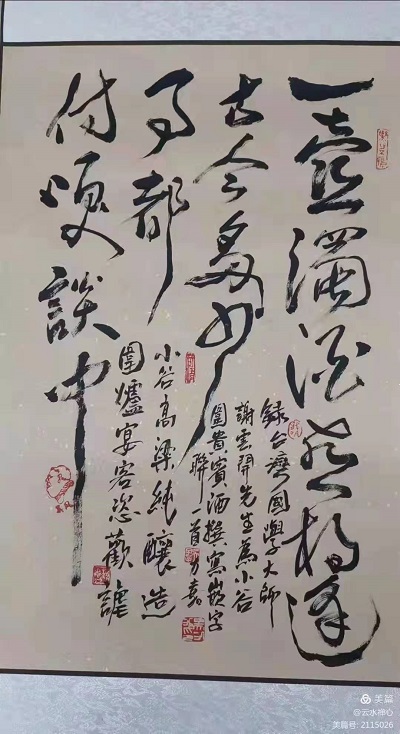 一壺濁酒喜相逢
古今多少
事都
付笑談中
小谷高梁純釀造
圍爐宴客恣歡謔
録台灣國學大師
謝雲開先生為小谷
圍貴賓酒撰寫嵌字
聯一首
美篇
@云水禅心
美篇号: 2115026